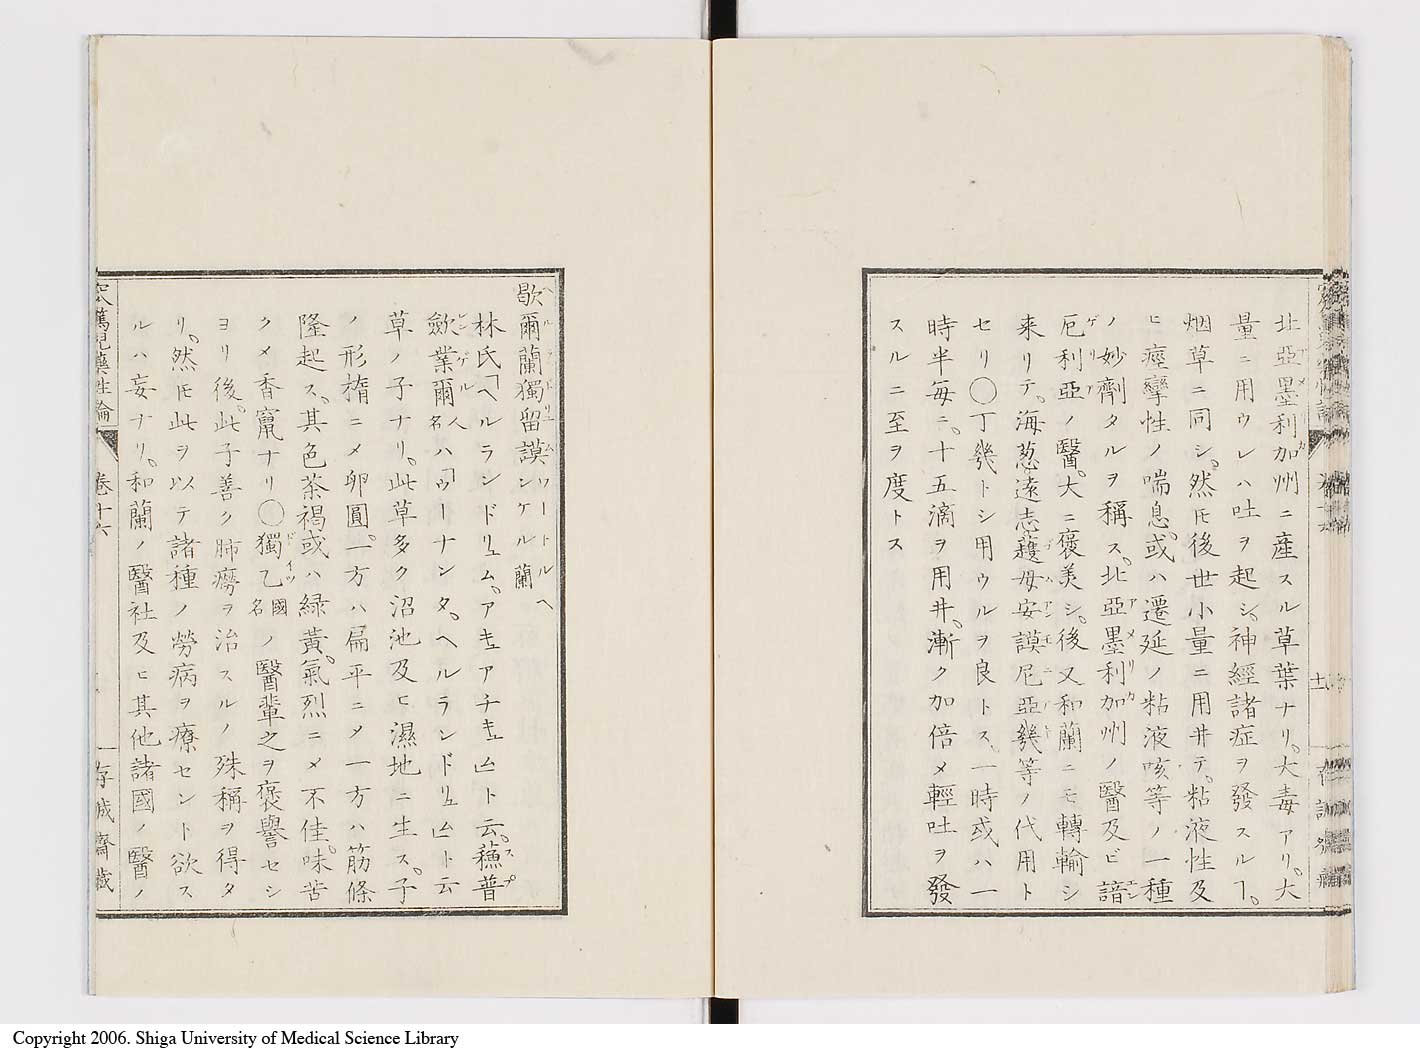 北亞墨利加州ニ産スル草葉ナリ。大毒アリ。大
量ニ用ウレハ吐ヲ起シ。神經諸症ヲ發スルヿ。
烟草ニ同シ。然𪜈後世小量ニ用井テ。粘液性及
ヒ痙攣性ノ喘息。或ハ遷延ノ粘液咳等ノ一種
ノ妙劑タルヲ稱ス。北亞墨利加州ノ醫及ビ諳
厄利亞ノ醫。大ニ褒美シ。後又和蘭ニモ轉輸シ
来リテ。海葱遠志護母安謨尼亞幾等ノ代用ト
セリ〇丁幾トシ用ウルヲ良トス。一時或ハ一
時半毎ニ。十五滴ヲ用井。漸ク加倍メ輕吐ヲ發
スルニ至ヲ度トス
歇爾蘭獨留謨 ヘルランドリユム ワートルヘンケル蘭
林氏「ヘルランドリュム。アキュアチキュムト云。蘓普
斂業爾人名ハ「ウーナンタ。ヘルランドリュムト云
草ノ子ナリ。此草多ク沼池及ヒ濕地ニ生ス。子
ノ形楕ニメ卵圓。一方ハ扁平ニメ一方ハ筋條
隆起ス。其色茶褐或ハ緑黄。氣烈ニメ不佳。味苦
クメ香竄ナリ〇獨乙國名ノ醫輩之ヲ褒譽セシ
ヨリ後。此子善ク肺癆ヲ治スルノ殊稱ヲ得タ
リ。然𪜈此ヲ以テ諸種ノ勞病ヲ療セント欲ス
ルハ妄ナリ。和蘭ノ醫社及ヒ其他諸國ノ醫ノ
卷十六
存誠齋蔵
Copyright 2006. Shiga University of Medical Science Library